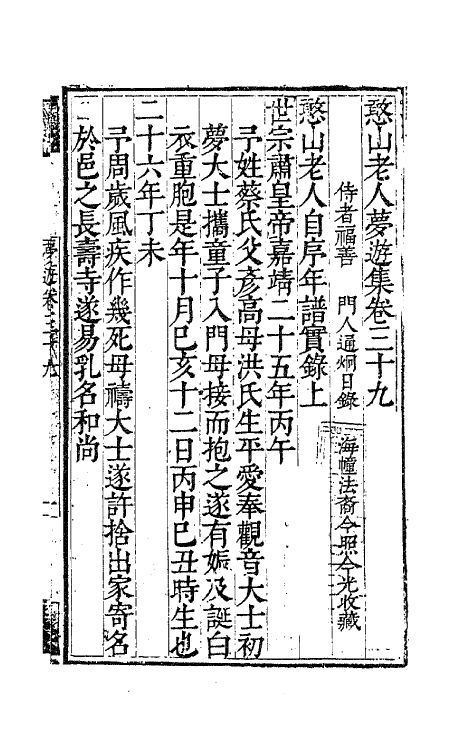 憨山老人夢遊集卷三十九
侍者福善　門人通炯日錄
海幢法裔今照今光收藏
憨山老人自序年譜實錄上
世宗肅皇帝嘉靖二十五年丙午
予姓蔡氏父彥高母洪氏生平愛奉觀音大士初
夢大士攜童子入門母接而抱之遂有娠及誕白
衣重胞是年十月己亥十二日丙申己丑時生也
二十六年丁未
予周歲風疾作幾死母禱大士遂許捨出家寄名
於邑之長壽寺遂易乳名和尚
夢遊卷三十九
一